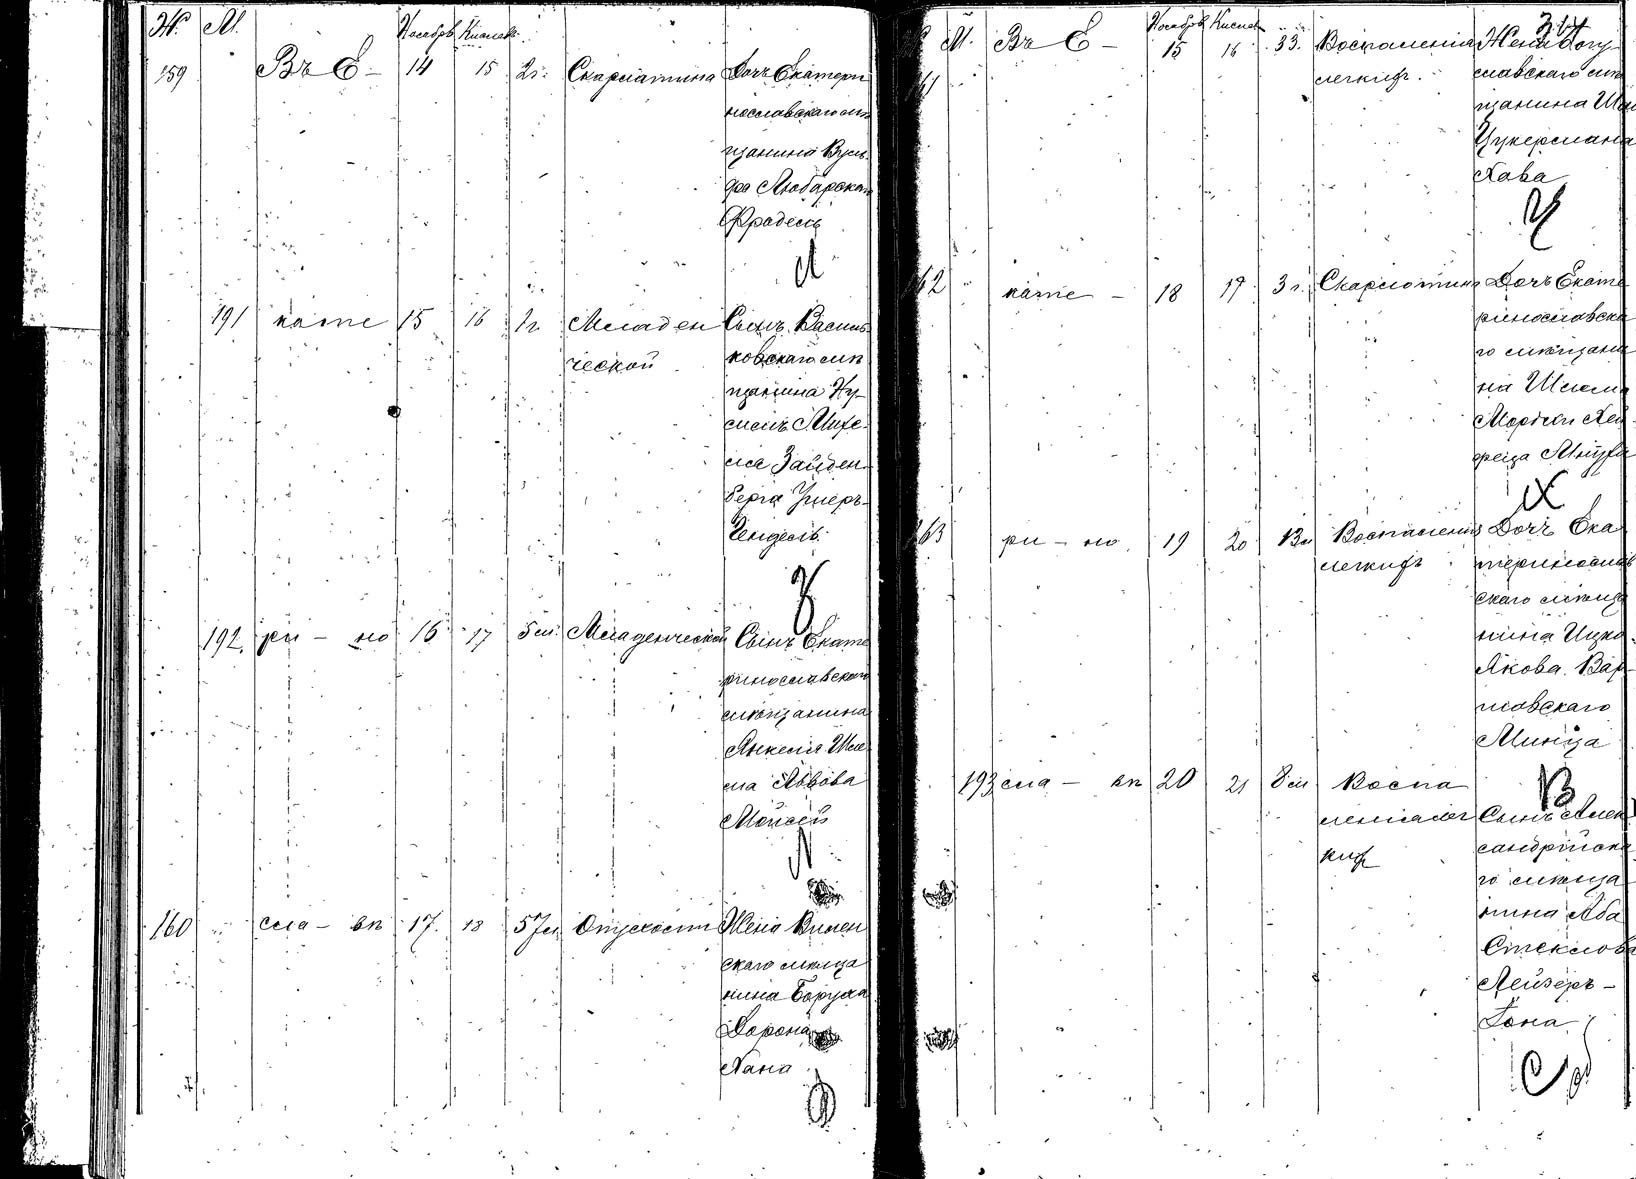 Ж. М. Ноабрь Кислев
159 Въ Е- 14 15 2г. Скарлатина Дочь Екатери
нославскаго мѣ
щанина Вуль
фа Любарскаго
Фрадель
Л
191 кате 15 16 1г. Младен Сынъ Василь
ческой ковскаго мѣ
щанина Ну-
симъ Михе-
ля Зайден-
берга Умеръ-
Гендель
З
192. ри - но 16 17 5 м. Младенческой Сынъ Екате
ринославскаго
мѣщанина
Янкеля Шле
ма Львова
Мойсей
Л
160 сла - вѣ 17. 18 57 л. Жена Вилен
скаго мѣща
нина Боруха
Дорона
Хана
Д
М. Ноабрь Кислев
161 Въ Е - 15 16 33. Воспаленія Жена Богу
легкихъ славскаго мѣ
щанина
Цукермана
Хава
Ц
162 кате - 18 17 3 г. Скарлатина Дочь Екате
ринославска
го мѣщани
на Шлема
Мордки Хей
феца
Х
163 ри - но 19 20 Воспаления Дочь Ека
легкихъ теринослав
скаго мѣща
нина Ицко-
Якова Вар-
шавскаго
Минца
В
193 сла - вѣ 20 21 8 м Воспа
леніе лег Сынъ Алек
кихъ сандрійска
го мѣща
нина Аба
Стеклова
Лейзеръ-
Іона
С